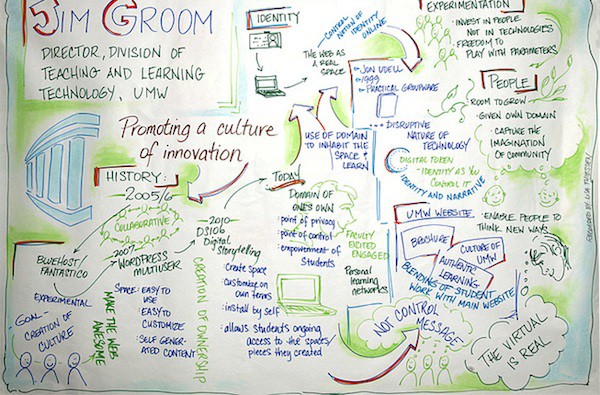 JIM GROOM
DIRECTOR, DIVISION OF
TEACHING AND LEARNING
TECHNOLOGY, UMW
Promoting a culture
of innovation
IDENTITY
THE WEB AS
A REAL
SPACE
CONTROL
NOTION OF IDENTITY
ONLINE
JON UDELL
1999
PRACTICAL GROUPWARE
USE OF DOMAIN
TO INHABIT THE
SPACE &
LEARN
DISRUPTIVE
NATURE OF
TECHNOLOGY
DIGITAL TOKEN
- IDENTITY AS YOU
CONTROL IT
IDENTITY AND NARRATIVE
EXPERIMENTATION
- INVEST IN PEOPLE
NOT IN TECHNOLOGIES
- FREEDOM TO
PLAY WITH PARAMETERS
PEOPLE
ROOM TO GROW
- GIVEN OWN DOMAIN
- CAPTURE THE
IMAGINATION
OF COMMUNITY
- ENABLE PEOPLE TO
THINK NEW WAYS
HISTORY:
2005/6
COLLABORATIVE
BLUEHOST/
FANTASTICO
EXPERIMENTAL
GOAL -
CREATION OF
CULTURE
2007
WORDPRESS
MULTIUSER
SPACE: EASY TO
USE
- EASY TO
CUSTOMIZE
- SELF GENER-
ATED CONTENT
MAKE THE WEB
AWESOME
2010
DS106
Digital
Storytelling
CREATION OF OWNERSHIP
- Create space
- customize on
own terms
- install by self
- allows students ongoing
access to the spaces/
pieces they created
TODAY
DOMAIN OF
ONE'S OWN
- point of privacy
- point of control
- empowerment of
students
FACULTY
EXCITED
ENGAGED
Personal
learning
networks
UMW WEBSITE
BROCHURE
CULTURE OF
UMW
AUTHENTIC
LEARNING
BLENDING OF STUDENT
WORK WITH MAIN WEBSITE
NOT CONTROL
MESSAGE
THE VIRTUAL
IS REAL